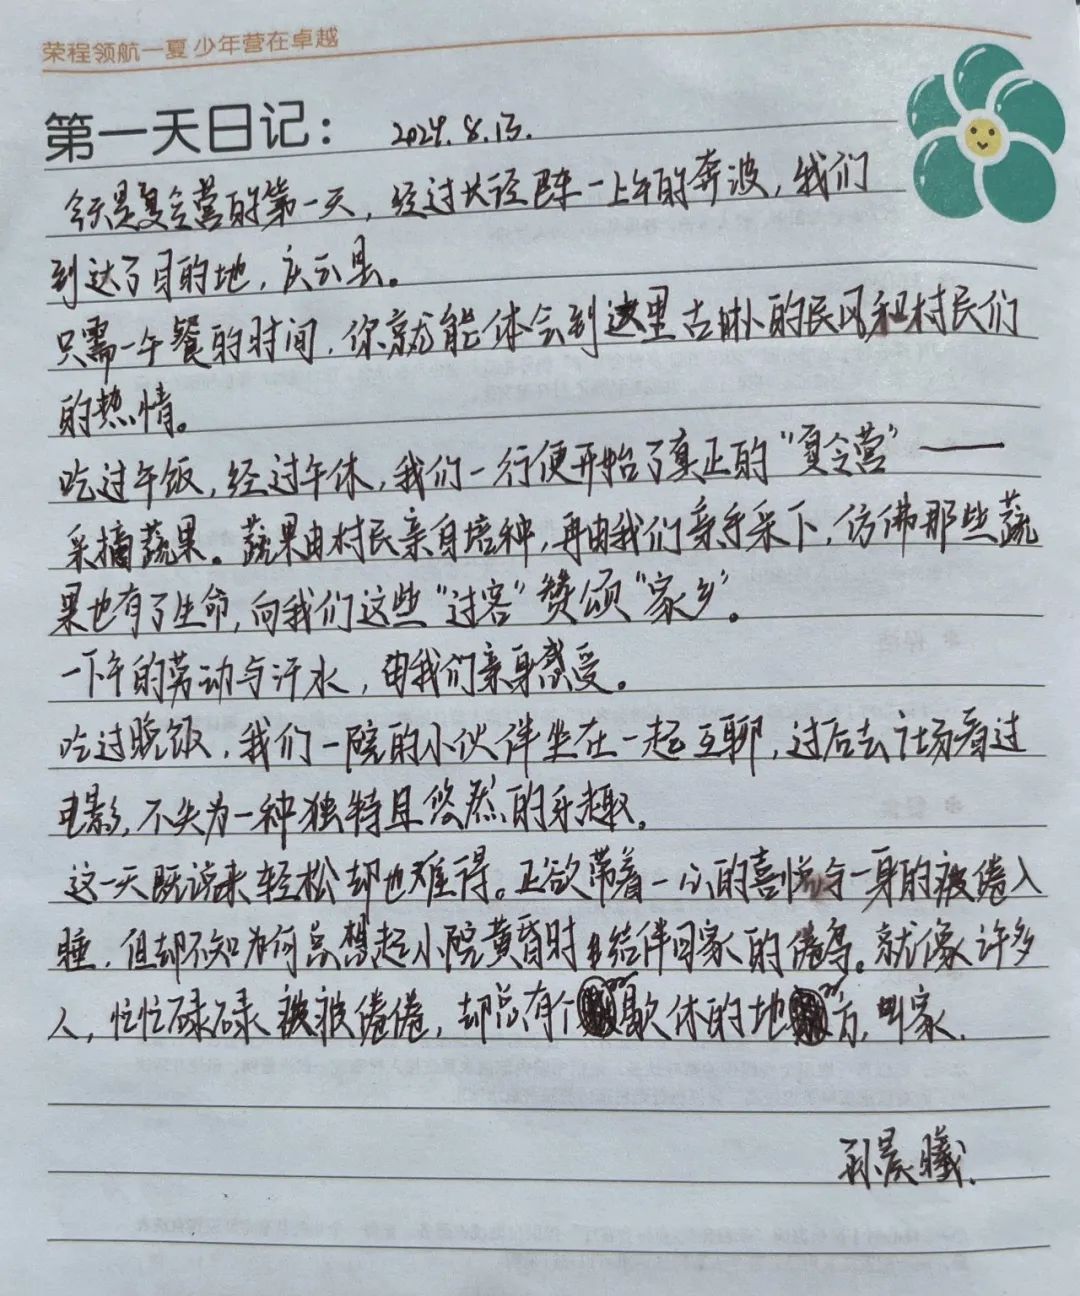 荣程领航一夏 少年营在卓越
第一天日记： 2024.8.13.
今天是夏令营的第一天，经过长途跋一上午的奔波，我们
到达了目的地，庆云县。
只需一午餐的时间，你就能体会到这里古朴的民风和村民们
的热情。
吃过午饭，经过午休，我们一行便开始了真正的“夏令营”——
采摘蔬果。蔬果由村民亲身培种，再由我们亲手采下，仿佛那些蔬
果也有了生命，向我们这些“过客”赞颂“家乡”。
一下午的劳动与汗水，由我们亲身感受。
吃过晚饭，我们一院的小伙伴坐在一起互聊，过后去广场看过
电影，不失为一种独特且悠然的乐趣。
这一天既说来轻松却也难得。正欲带着一心的喜悦与一身的疲倦入
睡，但却不知为何总想起小院黄昏时结伴回家的倦鸟。就像许多
人，忙忙碌碌疲疲倦倦，却总有个歇休的地方，叫家.
孙晨曦.